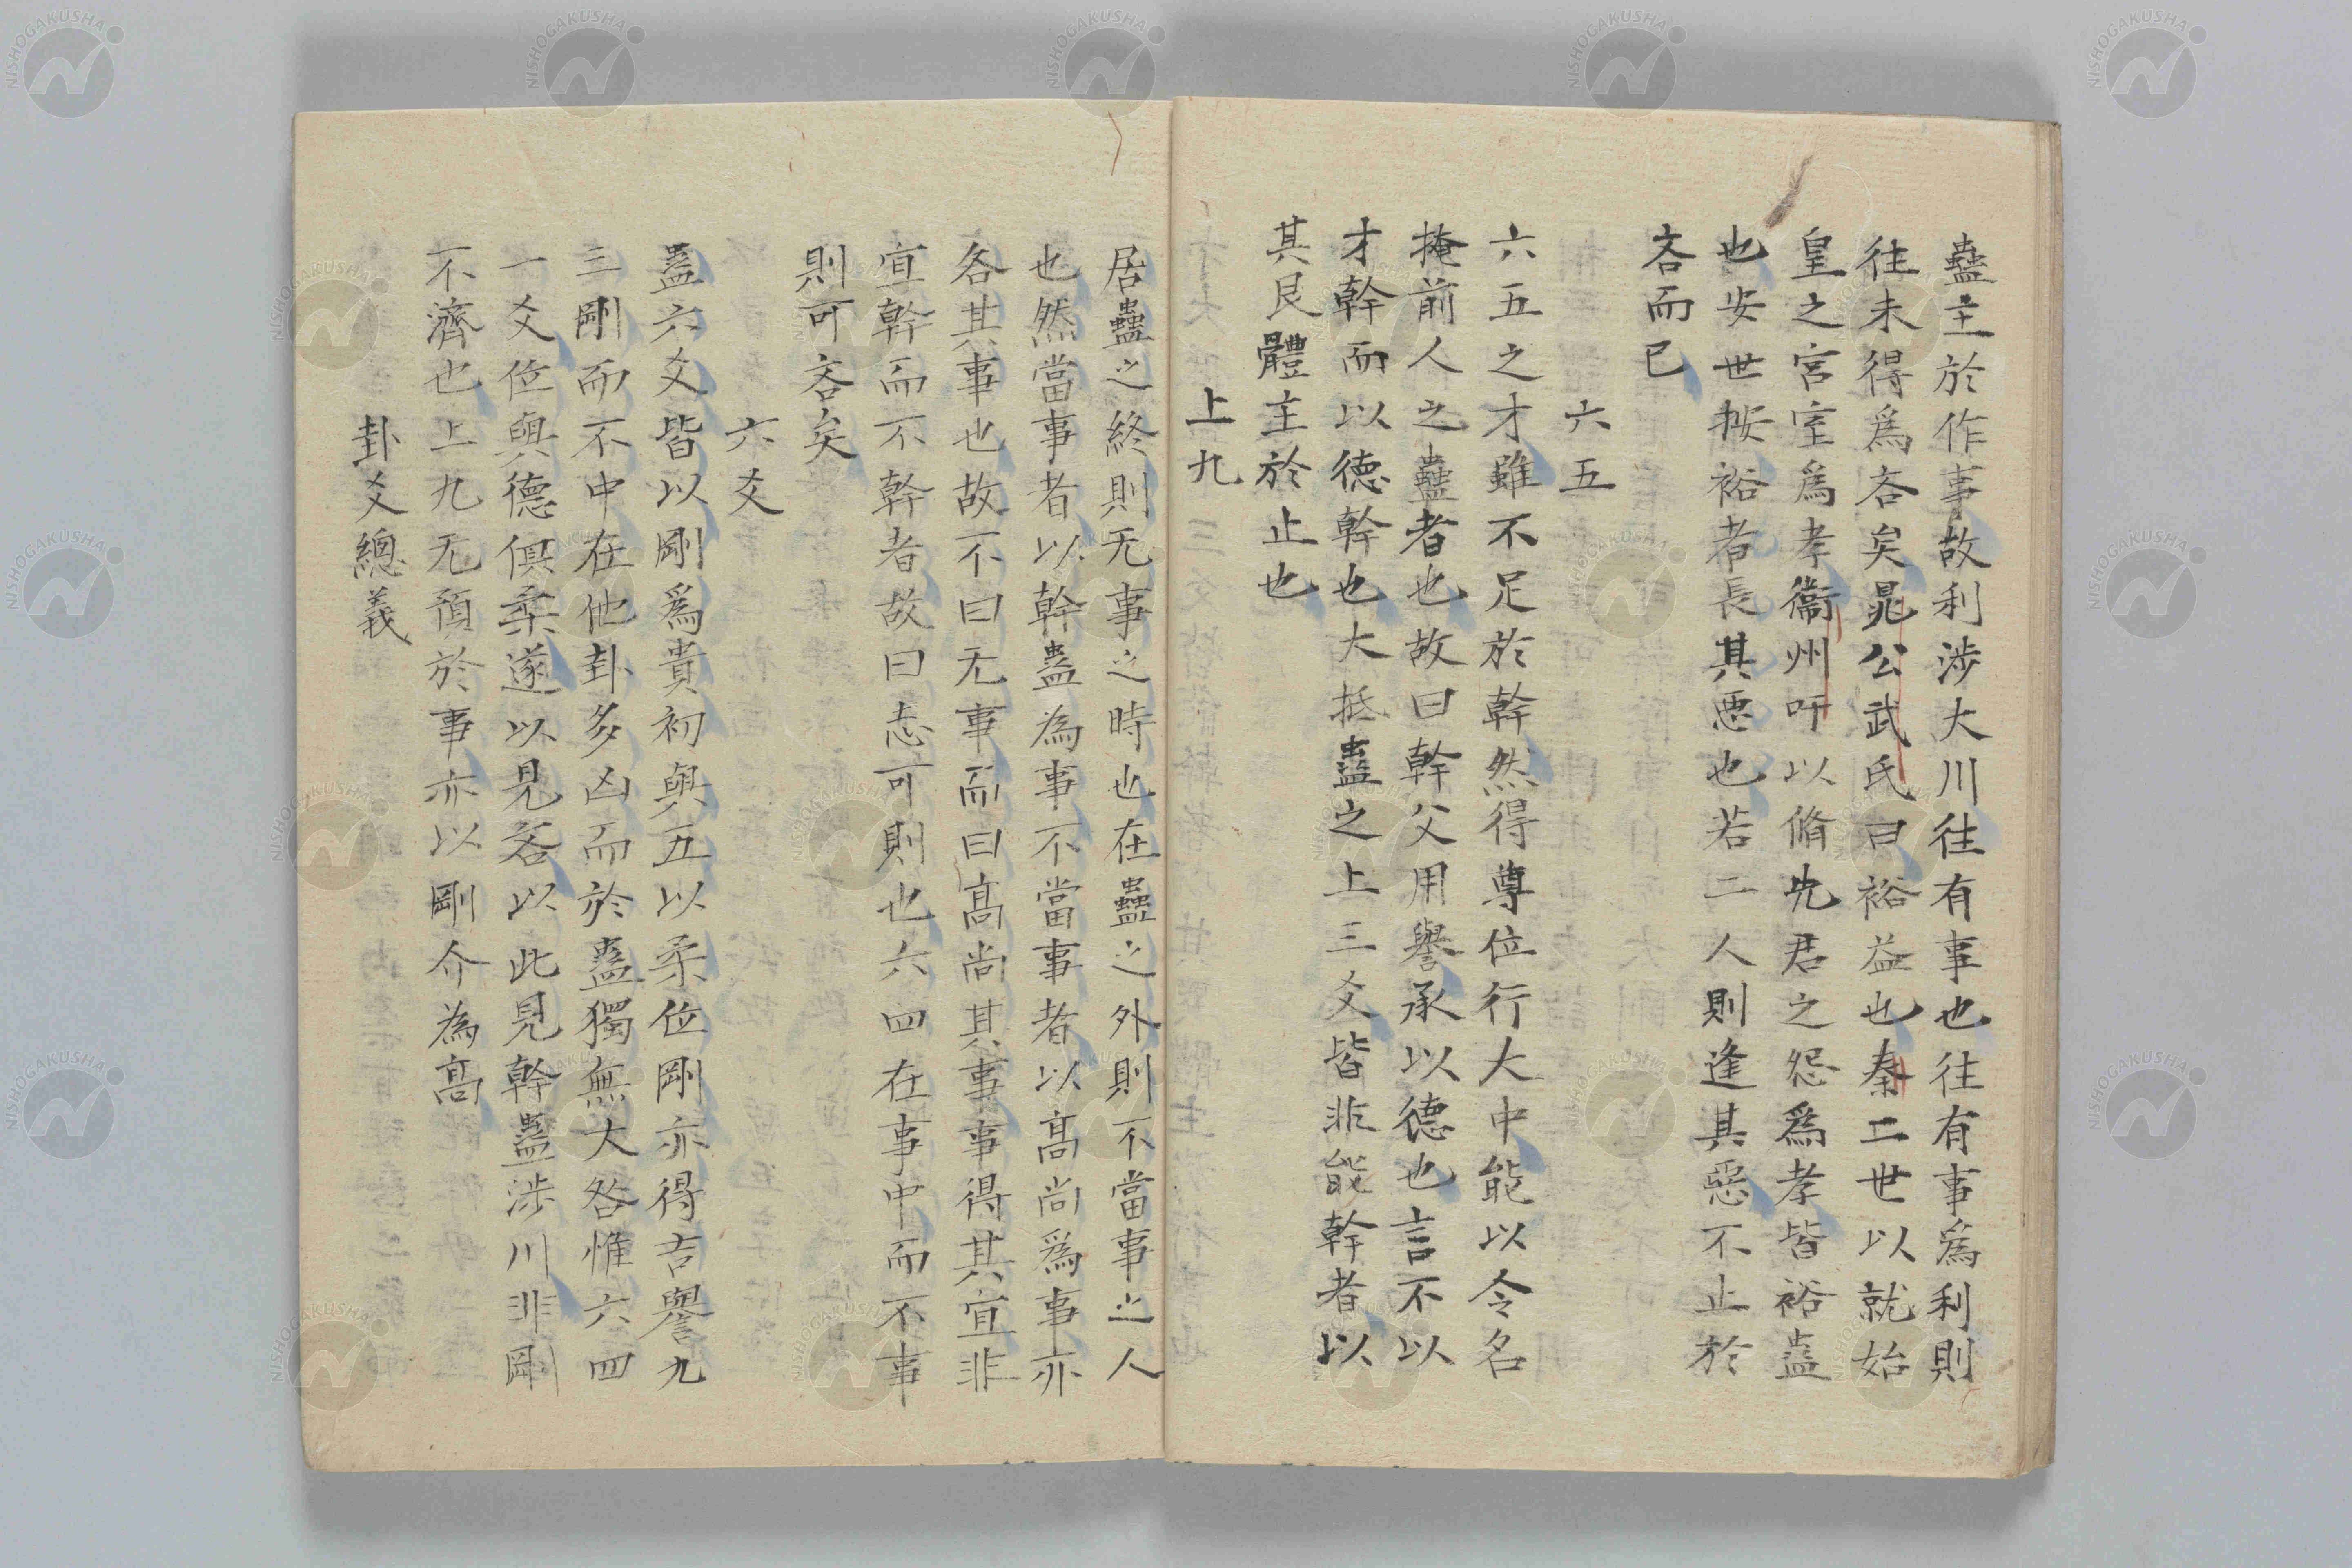 蠱主於作事故利涉大川往有事也往有事爲利則
往未得爲吝矣晁公武氏曰裕益也秦二世以就始
皇之宮室爲孝衞州吁以脩先君之怨爲孝皆裕蠱
也安世按裕者長其惡也若二人則逢其惡不止於
吝而已
六五
六五之才雖不足於幹然得尊位行大中能以令名
掩前人之蠱者也故曰幹父用譽承以德也言不以
才幹而以德幹也大抵蠱之上三爻皆非能幹者以
其艮體主於止也
上九
居蠱之終則无事之時也在蠱之外則不當事之人
也然當事者以幹蠱為事不當事者以髙尚爲事亦
各其事也故不曰无事而曰髙尚其事事得其宜非
宜幹而不幹者故曰志可則也六四在事中而不事
則可吝矣
六爻
蠱六爻皆以剛爲貴初與五以柔位剛亦得吉譽九
三剛而不中在他卦多凶而於蠱獨無大咎惟六四
一爻位與德俱柔遂以見吝以此見幹蠱涉川非剛
不濟也上九无預於事亦以剛介為髙
卦爻總義
NISHOGAKUSHA